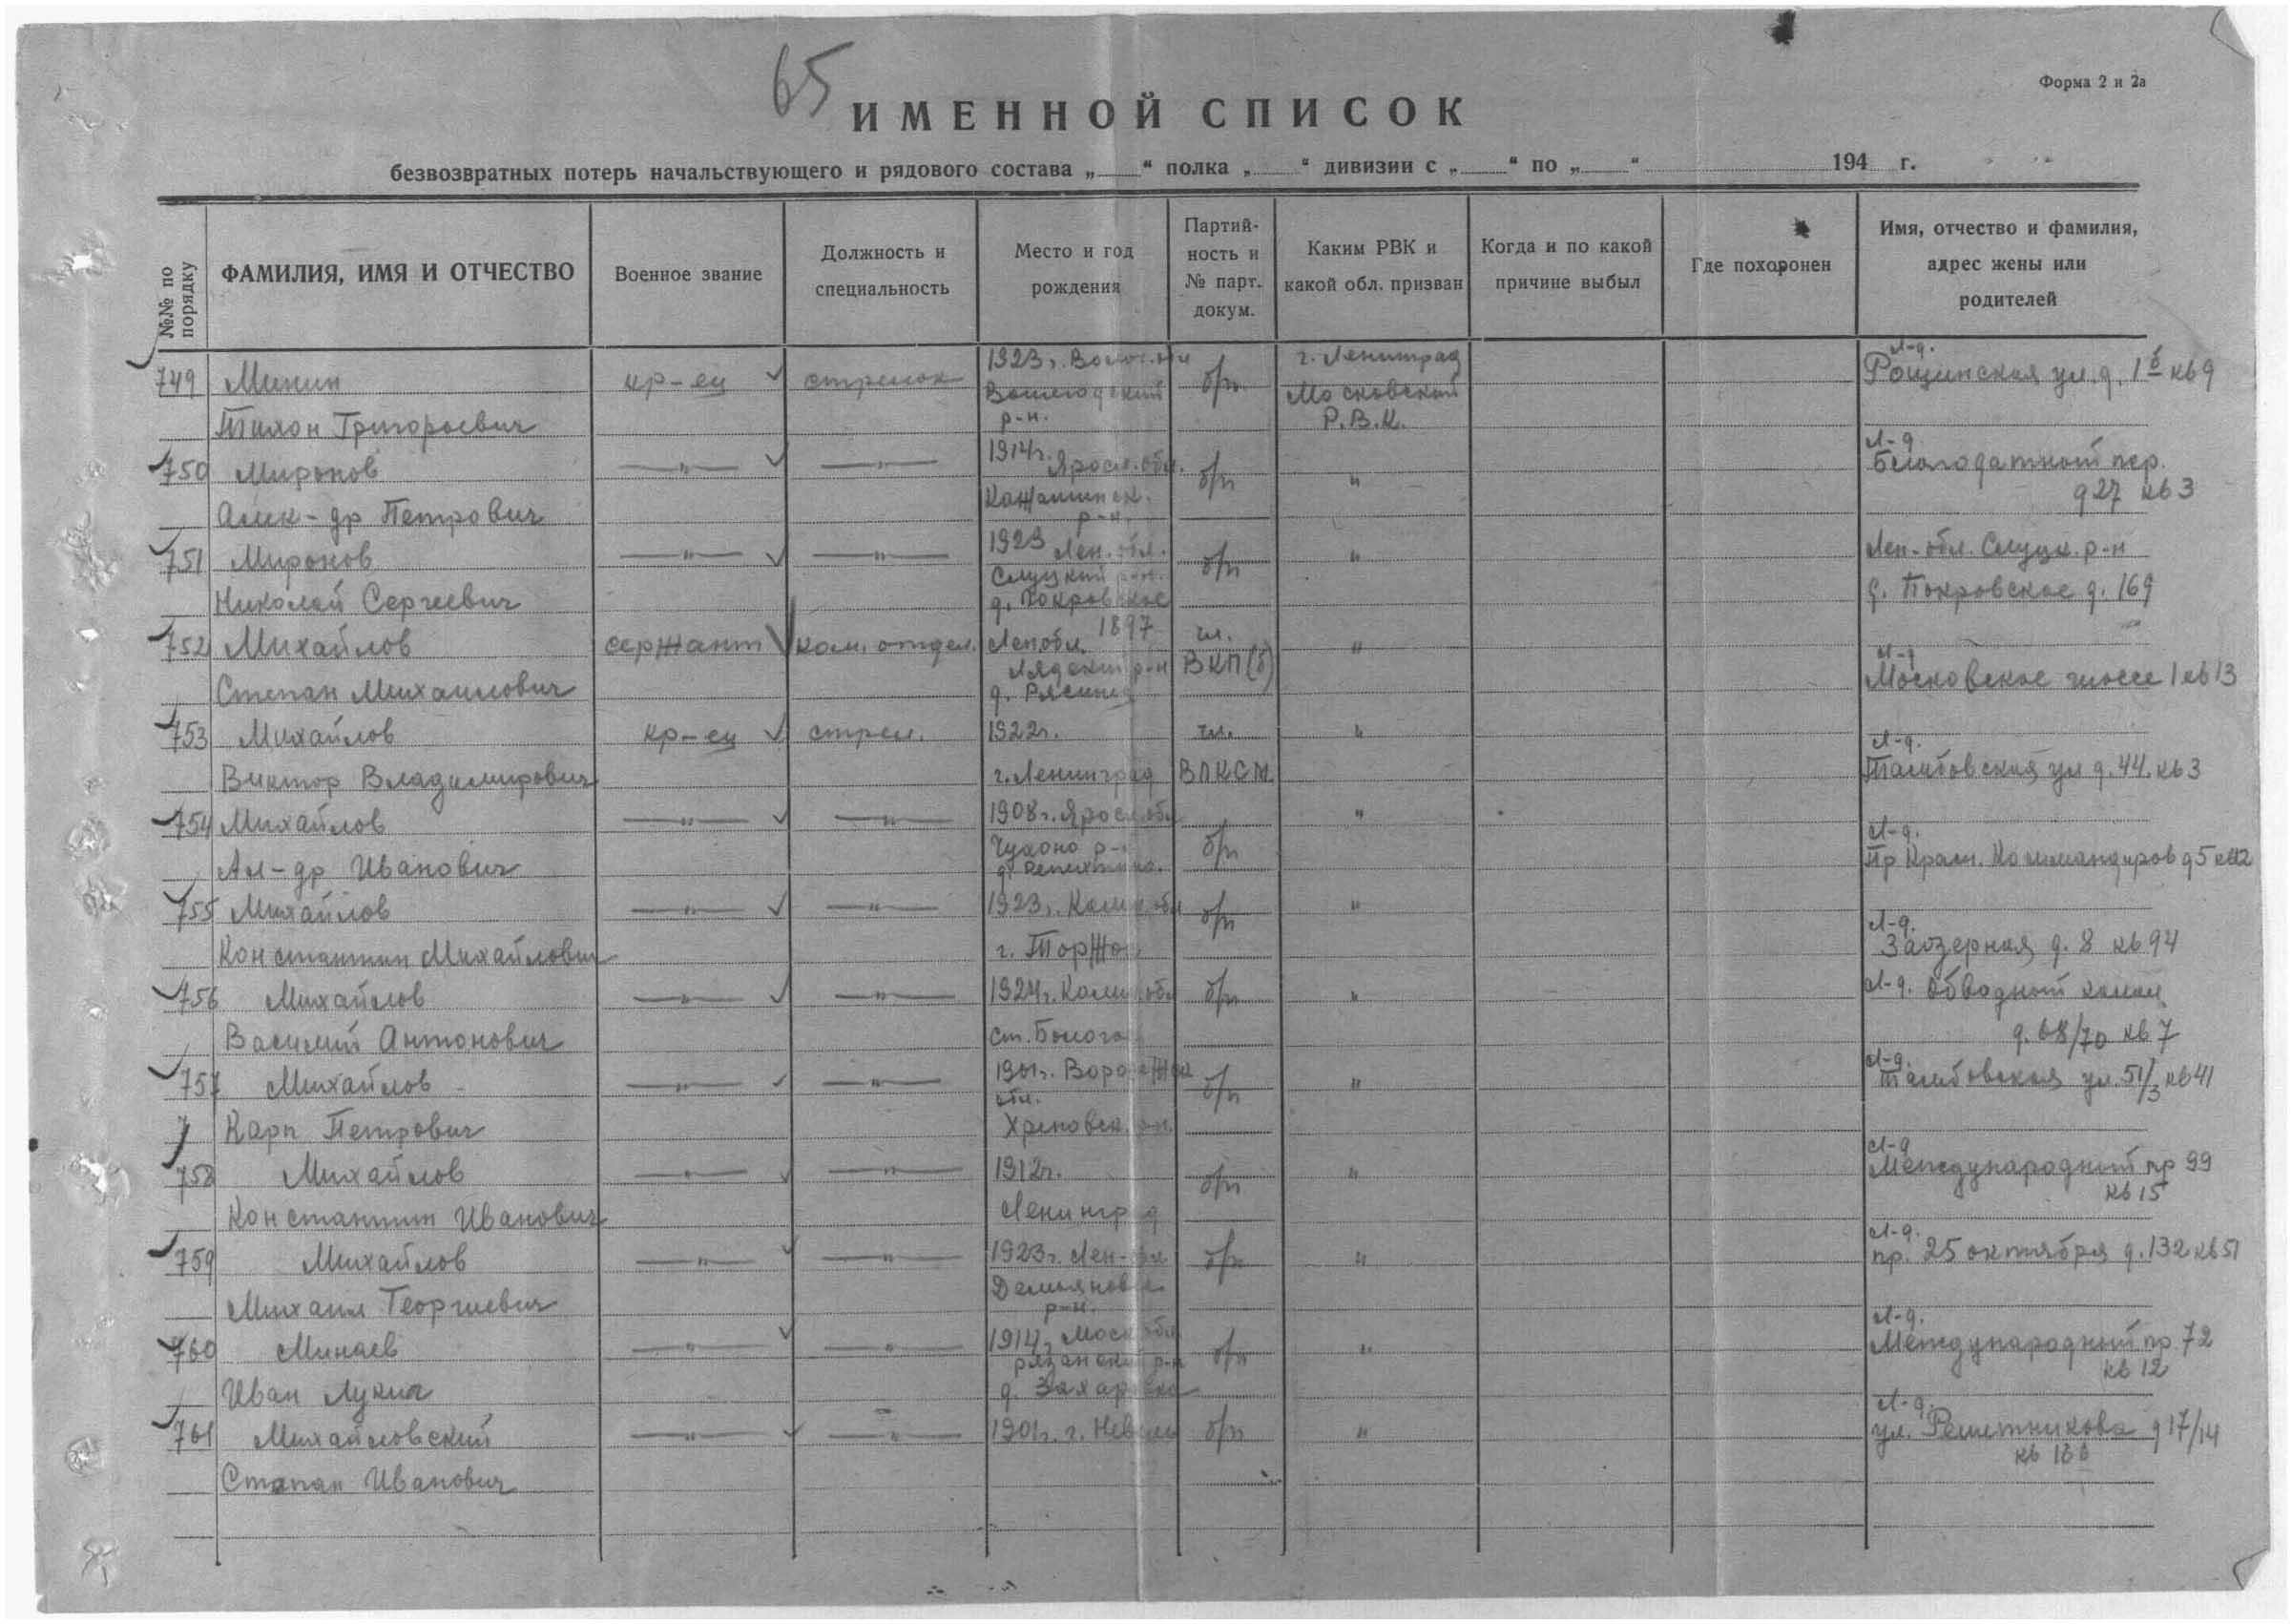 65
Форма 2 и 2а
ИМЕННОЙ СПИСОК
безвозвратных потерь начальствующего и рядового состава „ “ полка „ “ дивизии с „ “ по „ “ 194 г.
№№ по порядку
ФАМИЛИЯ, ИМЯ И ОТЧЕСТВО
Военное звание
Должность и
специальность
Место и год
рождения
Партий-
ность и
№ парт.
докум.
Каким РВК и
какой обл. призван
Когда и по какой
причине выбыл
Где похоронен
Имя, отчество и фамилия,
адрес жены или
родителей
749 Минин кр-ец стрелок 1923г. Волог. обл б/п г. Ленинград Л-д.
Вологодский Московский Рощинская ул. д. 1б кв 9
Тихон Григорьевич р-н. Р.В.К.
750 Миронов —"— —"— 1914г. Яросл. обл. б/п " Л-д
Благодатный пер.
Алек-др Петрович р-н. д 27 кв 3
751 Миронов —"— —"— 1923 Лен. обл. б/п " Лен. обл. Слуцк. р-н
Слуцкий р-н.
Николай Сергеевич д. Покровское д. Покровское д. 169
752 Михайлов сержант ком. отдел. 1897 чл. "
Лен обл. ВКП(б) Л-д
Степан Михайлович Лядский р-н Московское шоссе 1 кв 13
д.
753 Михайлов кр-ец стрел. 1922г. чл. " Л-д.
Виктор Владимирович г. Ленинград ВЛКСМ Тамбовская ул д. 44. кв 3
754 Михайлов —"— —"— 1908г. Яросл. обл б/п " Л-д.
Ал-др Иванович р-н Пр Красн. Коммандиров д 5
д.
755 Михайлов —"— —"— 1923г. Калин. обл б/п " Л-д.
Константин Михайлович г. Торжок Заозерная д. 8 кв 94
756 Михайлов —"— —"— 1924г. Калин. обл б/п " Л-д. Обводный канал
Василий Антонович ст. Бологое д. 68/70 кв 7
757 Михайлов —"— —"— Воронеж б/п " Л-д.
обл. Тамбовская ул. 51/3 кв 41
Карп Петрович Хреновск. р-н.
758 Михайлов —"— —"— 1912г. б/п " Л-д
Международный пр 99
Константин Иванович Ленинград кв 15
759 Михайлов —"— —"— 1923г. Лен. обл б/п " Л-д.
Демьяновск пр. 25 октября д. 132 кв 51
Михаил Георгиевич р-н.
760 Минаев —"— —"— 1914г. Моск обл б/п " Л-д.
рязанский р-н Международный пр. 72
Иван Лукич д. кв 12
761 Михайловский —"— —"— 1901г. г. Невель б/п " Л-д.
ул. Решетникова д 17/14
Степан Иванович кв